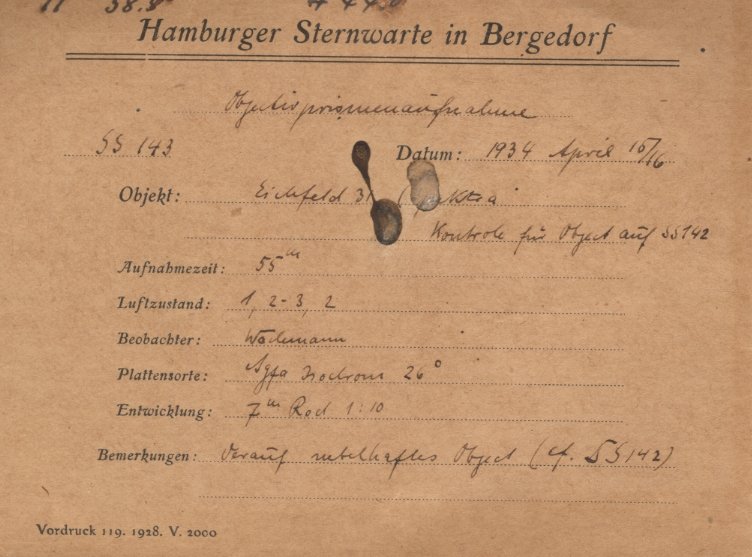 Hamburger Sternwarte in Bergedorf
Objectivprismenaufnahme
SS 143 Datum: 1934 April 15/16
Objekt: Eichfeld 31
Kontrole für Object auf SS142
Aufnahmezeit: 55ᵐ
Luftzustand: 1, 2-3, 2
Beobachter: Wachmann
Plattensorte: Agfa Isochrom 26°
Entwicklung: 7ᵐ Rod 1:10
Bemerkungen: Darauf nebelhaftes Object (cf. SS142)
Vordruck 119. 1928. V. 2000